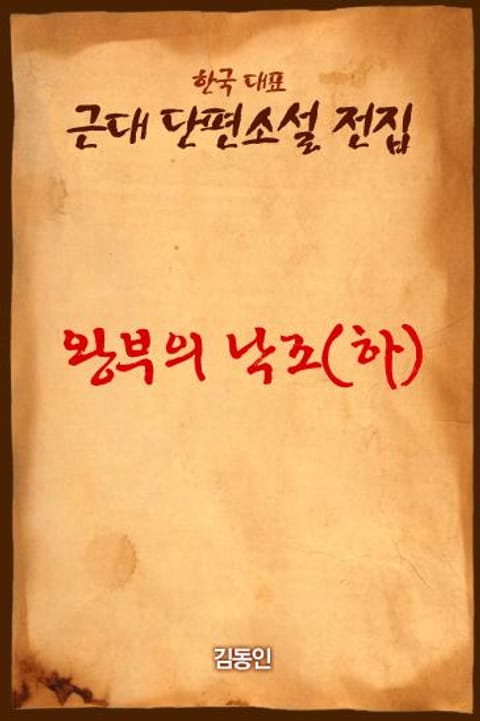 한국 대표
근대 단편소설 전집
왕부의 낙조(하)
김동인